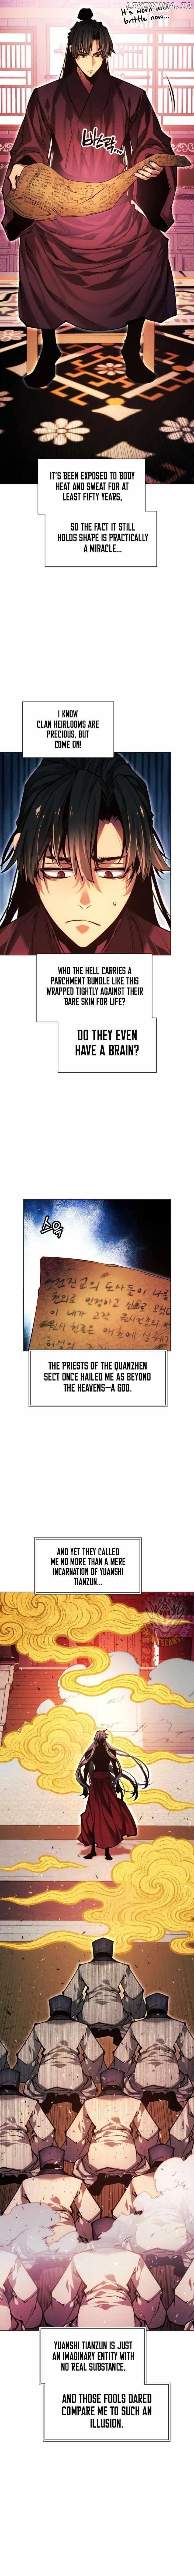 It's worn and
brittle now...
바스락...
IT'S BEEN EXPOSED TO BODY
HEAT AND SWEAT FOR AT
LEAST FIFTY YEARS,
SO THE FACT IT STILL
HOLDS SHAPE IS PRACTICALLY
A MIRACLE...
I KNOW
CLAN HEIRLOOMS ARE
PRECIOUS, BUT
COME ON!
WHO THE HELL CARRIES A
PARCHMENT BUNDLE LIKE THIS
WRAPPED TIGHTLY AGAINST THEIR
BARE SKIN FOR LIFE?
DO THEY EVEN
HAVE A BRAIN?
스윽
THE PRIESTS OF THE QUANZHEN
SECT ONCE HAILED ME AS BEYOND
THE HEAVENS—A GOD.
AND YET THEY CALLED
ME NO MORE THAN A MERE
INCARNATION OF YUANSHI
TIANZUN...
YUANSHI TIANZUN IS JUST
AN IMAGINARY ENTITY WITH
NO REAL SUBSTANCE,
AND THOSE FOOLS DARED
COMPARE ME TO SUCH AN
ILLUSION.